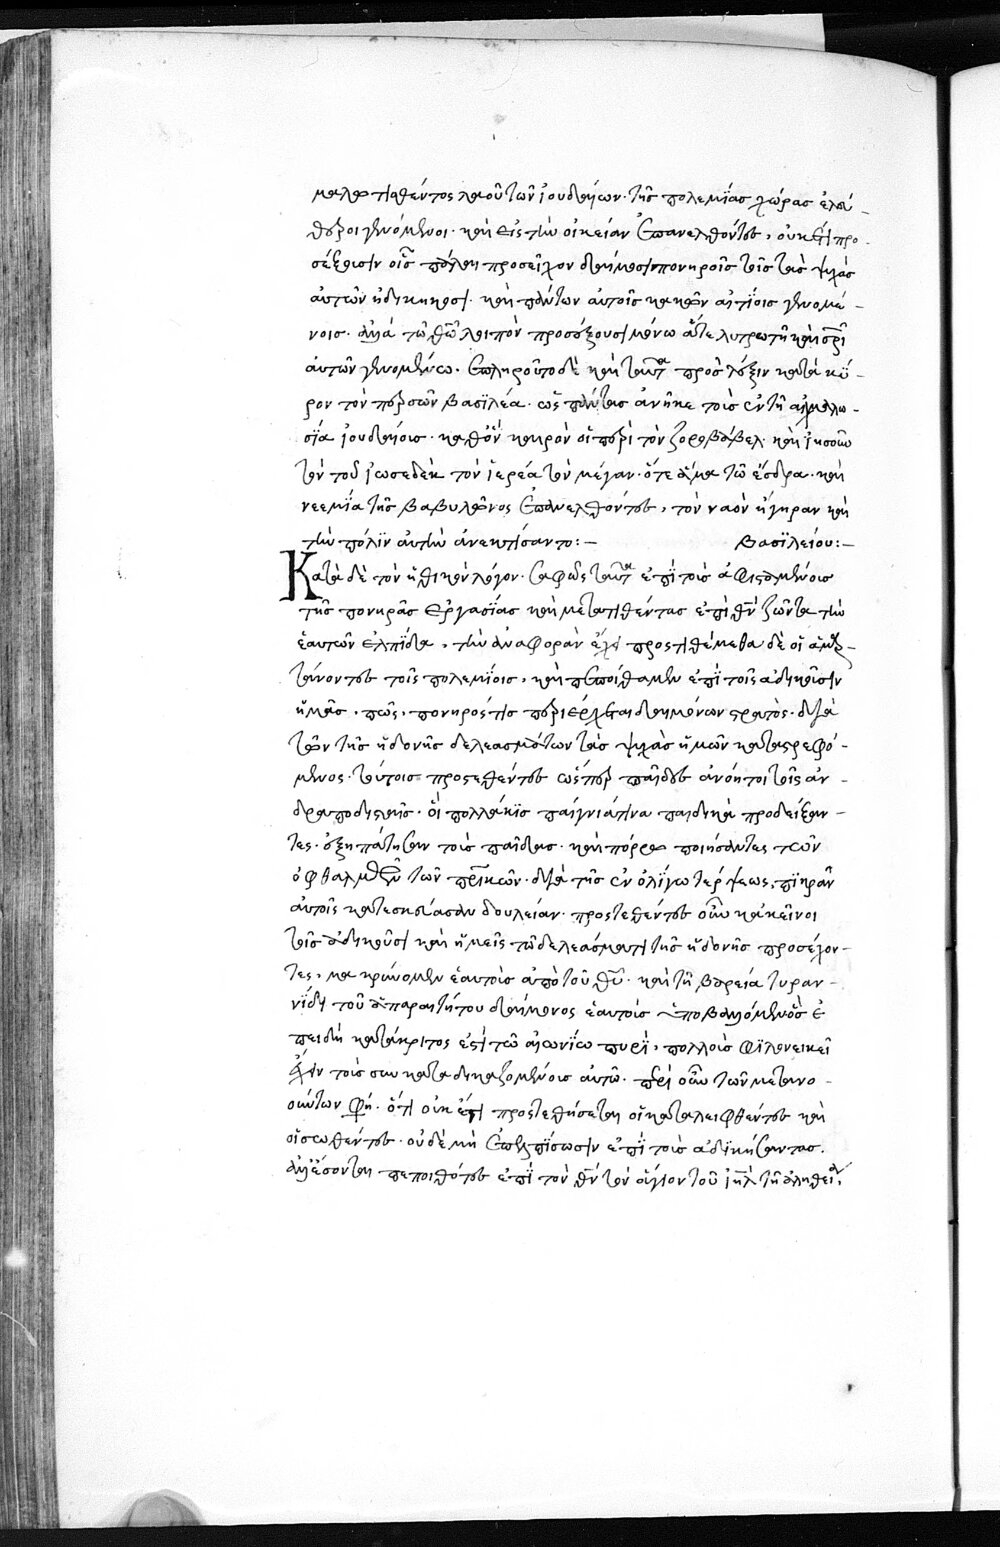 μαλωτισθέντος λαοῦ τῶν ἰουδαίων· τῆς πολεμΐας χώρας ἐλεύ-
θεροι γενόμενοι· καὶ εἰς τὴν οἰκείαν ἐπανελθόντες, οὐκέτι προ-
σέξουσιν οἷς πάλαι προσεῖχον δαίμοσι πονηροῖς τοῖς τὰς ψυχὰς
αὐτῶν ἠδικηκόσι· καὶ πάντων αὐτοῖς κακῶν αἰτΐοις γενομέ-
νοις· ἀλλὰ τῶ θῶ λοιπὸν προσέξουσι μόνω ἅτε λυτρωτῆ καὶ σρὶ
αὐτῶν γενομένω. ἐπληροῦτο δὲ καὶ ταῦτα πρὸς λέξιν κατὰ κύ-
ρον τὸν περσῶν βασϊλέα· ὡς πάντας ἀνῆκε τοὺς ἐν τῆ αἰχμαλω-
σΐα ἰουδαίους· καθ' ὃν καιρὸν οἱ περὶ τὸν ζοροβάβελ· καὶ ἰησοῦν
τὸν τοῦ ἰωσεδὲκ τὸν ἱερέα τὸν μέγαν· ὅτε ἅμα τῶ ἔσδρα· καὶ
νεεμΐα τῆς βαβυλῶνος ἐπανελθόντες, τὸν ναὸν ἤγειραν καὶ
τὴν πόλϊν αὐτὴν ἀνεκτίσαντο:— βασϊλείου:—
Κατὰ δὲ τὸν ἠθικὸν λόγον· σαφῶς ταῦτα ἐπΐ τοὺς ἀφισαμένους
τῆς πονηρᾶς ἐργασΐας καὶ μετατιθέντας ἐπὶ θν ζῶντα τὴν
ἑαυτῶν ἐλπίδα, τὴν ἀναφορὰν ἔχει προστιθέμεθα δὲ οἱ ἁμαρ-
τάνοντες τοῖς πολεμΐοις, καὶ πεποίθαμεν ἐπΐ τοῖς ἀδικοῦσιν
ἡμᾶς, πῶς, πονηρός τις περιέρχεται δαιμόνων στρατὸς· διὰ
τῶν τῆς ἡδονῆς δελεασμάτων τὰς ψυχὰς ἡμῶν καταστρεφό-
μενος· τούτοις προστεθέντες ὥσπερ παῖδες ἀνόητοι τοῖς ἀν-
δραποδισταῖς· οἳ πολλάκις παίγνιά τινα παιδικὰ προδείξαν-
τες· ἐξηπάτησαν τοὺς παῖδας· καὶ πόρρω ποιήσαντες τῶν
ὀφθαλμῶν τῶν πρικῶν· διὰ τῆς ἐν ὀλίγω τέρψεως, πϊκρὰν
αὐτοῖς κατεσκεύασαν δουλείαν· προστεθέντες οὖν κἀκεῖνοι
τοῖς ἀδικοῦσι καὶ ἡμεῖς τῶ δελεάσματι τῆς ἡδονῆς προσέχον-
τες, μακρύνομεν ἑαυτοὺς ἀπὸ τοῦ θυ· καὶ τῆ βαρεία τυραν-
νΐδι τοῦ ἀπαραιτήτου δαίμονος ἑαυτοὺς ὑποβαλλόμενος ἐ
πειδὴ κατάκριτος ἐστὶ τῶ αἰωνΐω πυρὶ, πολλοὺς φϊλονεικεῖ
ἔχειν τοὺς συγκαταδικαζομένους αὐτῶ· περὶ οὖν τῶν μετανο-
ούντων φη· ὅτι οὐκ ἔτι προστεθήσεται οἱ καταλειφθέντες καὶ
οἱ σωθέντες· οὐδὲ μὴ ἐπελπΐσωσιν ἐπΐ τοὺς ἀδικήσαντας.
ἀλλ' ἔσονται πεποιθότες ἐπΐ τὸν θν τὸν ἅγιον τοῦ ιηλ τῆ ἀληθεία·